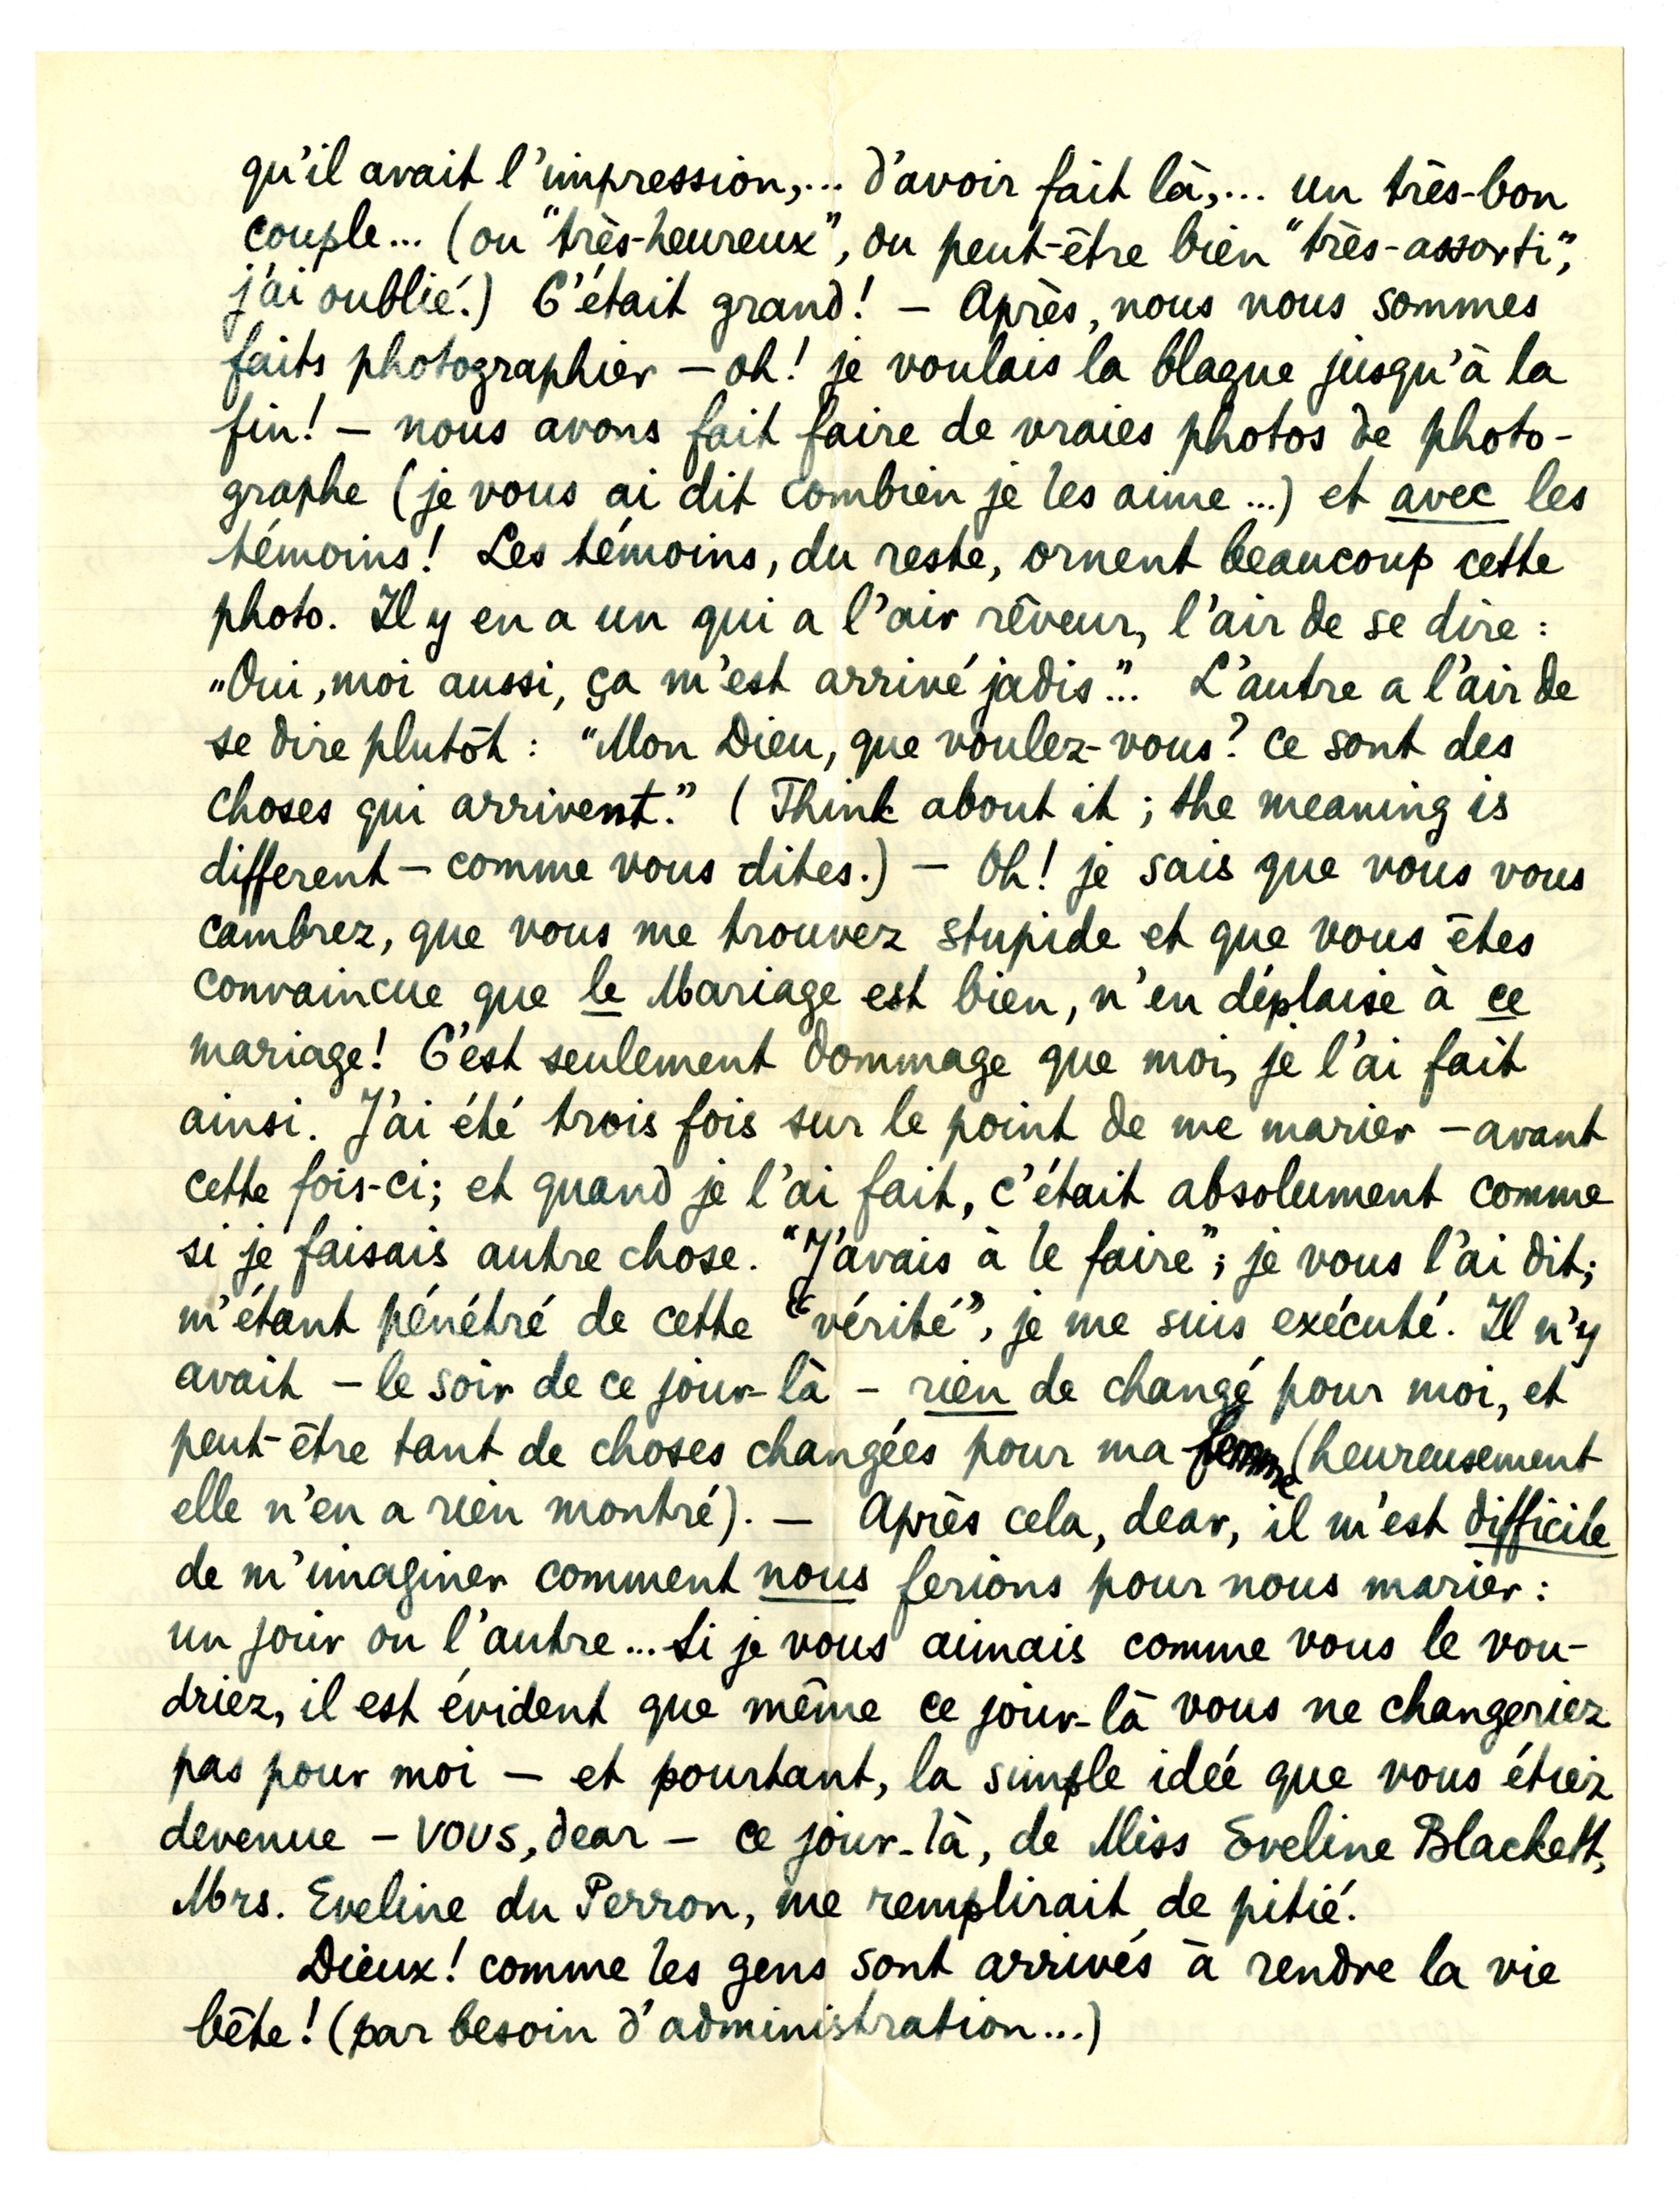 qu'il avait l'impression,... d'avoir fait là,... un très-bon
couple... (ou "très-heureux", ou peut-être bien "très-assorti",
j'ai oublié.) C'était grand! — Après, nous nous sommes
faits photographier — oh! je voulais la blague jusqu'à la
fin! — nous avons fait faire de vraies photos de photo-
graphe (je vous ai dit combien je les aime...) et avec les
témoins! Les témoins, du reste, ornent beaucoup cette
photo. Il y en a un qui a l'air rêveur, l'air de se dire :
„Oui, moi aussi, ça m'est arrivé jadis"... L'autre a l'air de
se dire plutôt : "Mon Dieu, que voulez-vous? ce sont des
choses qui arrivent." (Think about it ; the meaning is
different — comme vous dites.) — Oh! je sais que vous vous
cambrez, que vous me trouvez stupide et que vous êtes
convaincue que le Mariage est bien, n'en déplaise à ce
mariage! C'est seulement dommage que moi, je l'ai fait
ainsi. J'ai été trois fois sur le point de me marier — avant
cette fois-ci; et quand je l'ai fait, c'était absolument comme
si je faisais autre chose. "J'avais à le faire"; je vous l'ai dit;
m'étant pénétré de cette "vérité", je me suis exécuté. Il n'y
avait — le soir de ce jour-là — rien de changé pour moi, et
peut-être tant de choses changées pour ma femme (heureusement
elle n'en a rien montré). — Après cela, dear, il m'est difficile
de m'imaginer comment nous ferions pour nous marier :
un jour ou l'autre... Si je vous aimais comme vous le vou-
driez, il est évident que même ce jour-là vous ne changeriez
pas pour moi — et pourtant, la simple idée que vous étiez
devenue — vous, dear — ce jour-là, de Miss Eveline Blackett,
Mrs. Eveline du Perron, me remplirait de pitié.
Dieux! comme les gens sont arrivés à rendre la vie
bête! (par besoin d'administration...)